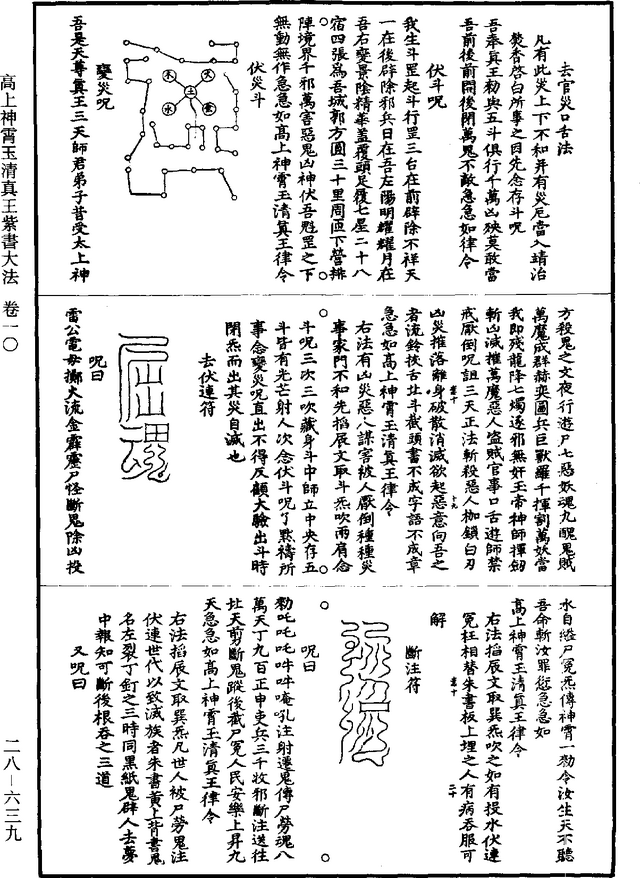 高上神霄玉清真王紫書大法 卷一〇
二八—六三九
去官災口舌法
凡有此災上下不和并有災厄當入靖治
焚香啓白所事之因先念存斗呪
吾奉真王勑與五斗俱行千萬凶殃莫敢當
吾前後前開後閉萬鬼不敵急急如律令
伏斗呪
我生斗罡起斗行罡三台在前辟除不祥天
一在後辟除邪兵日在吾左陽明耀耀月在
吾右變景陰精華蓋覆頭足履七星二十八
宿四張爲吾城郭方圓三十里周匝下營排
陣境界千邪萬害惡鬼凶神伏吾魁罡之下
無動無作急急如高上神霄玉清真王律令
伏災斗
變災呪
吾是天尊真王三天師君弟子昔受太上神
方殺鬼之文夜行遊尸七惡妖魂九醜鬼賊
萬魔成群赫奕圖兵巨獸羅千揮割萬妖當
我即殘龍降七燭逐邪無奸玉帝神師揮劒
斬凶滅摧萬魔惡人盜賊官事口舌遊師禁
戒厭倒呪詛三天正法斬殺惡人枷鎖白刃
凶災推落離身破散消滅欲起惡意向吾之
者流鈴挾舌北斗截頭書不成字語不成章
急急如高上神霄玉清真王律令
右法有凶災惡八謀害被人厭倒種種災
事家門不和先掐辰文取斗炁吹兩肩念
斗呪三次三吹藏身斗中師立中央存五
斗皆有光芒射人次念伏斗呪了默禱所
事念變災呪直出不得反顧大驗出斗時
閉炁而出其災自滅也
去伏連符
呪曰
雷公電母擲火流金霹靂尸怪斷鬼除凶投
水自縊尸冤炁傳神霄一勑令汝生天不聽
吾命斬汝罪愆急急如
高上神霄玉清真王律令
右法掐辰文取巽炁吹之如有投水伏連
冤枉相替朱書板上埋之人有病吞服可
解
斷注符
呪曰
勑吒吒吒吽吽唵吼注射遷鬼傳尸勞魂八
萬天丁九百正申吏兵三千收邪斷注送往
北天剪斷鬼蹤後截尸冤人民安樂上昇九
天急急如高上神霄玉清真王律令
右法掐辰文取巽炁凡世人被尸勞鬼注
伏連世代以致滅族者朱書黃上背書鬼
名左裂丁釘之三時同黑紙鬼辟人去夢
中報知可斷後根吞之三道
又呪曰